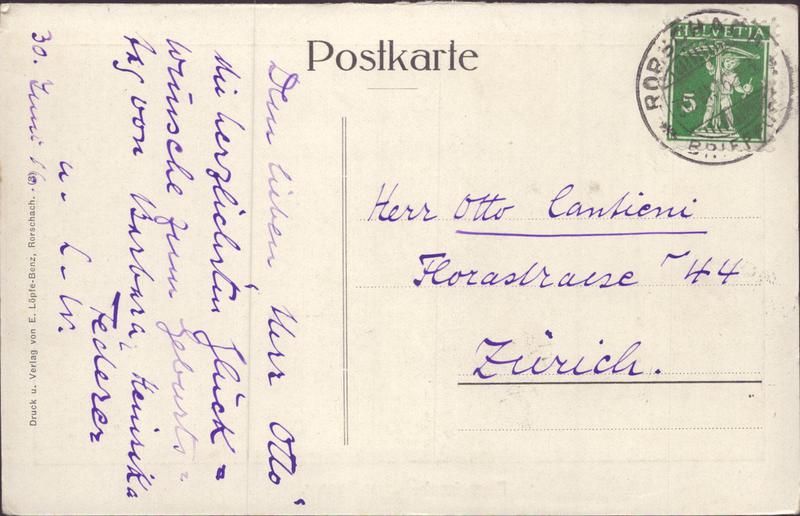 Postkarte
HELVETIA
5
RORSCHACH
BRIEF
Dem lieben Herr Otto
die herzlichsten Glück=
wünsche zum Geburts=
tag von Barbara, Heinrika
Federer
u. L. W.
30. Juni
Herr Otto Cantieni
Florastrasse 44
Zürich.
Druck u. Verlag von E. Löpfe-Benz, Rorschach.